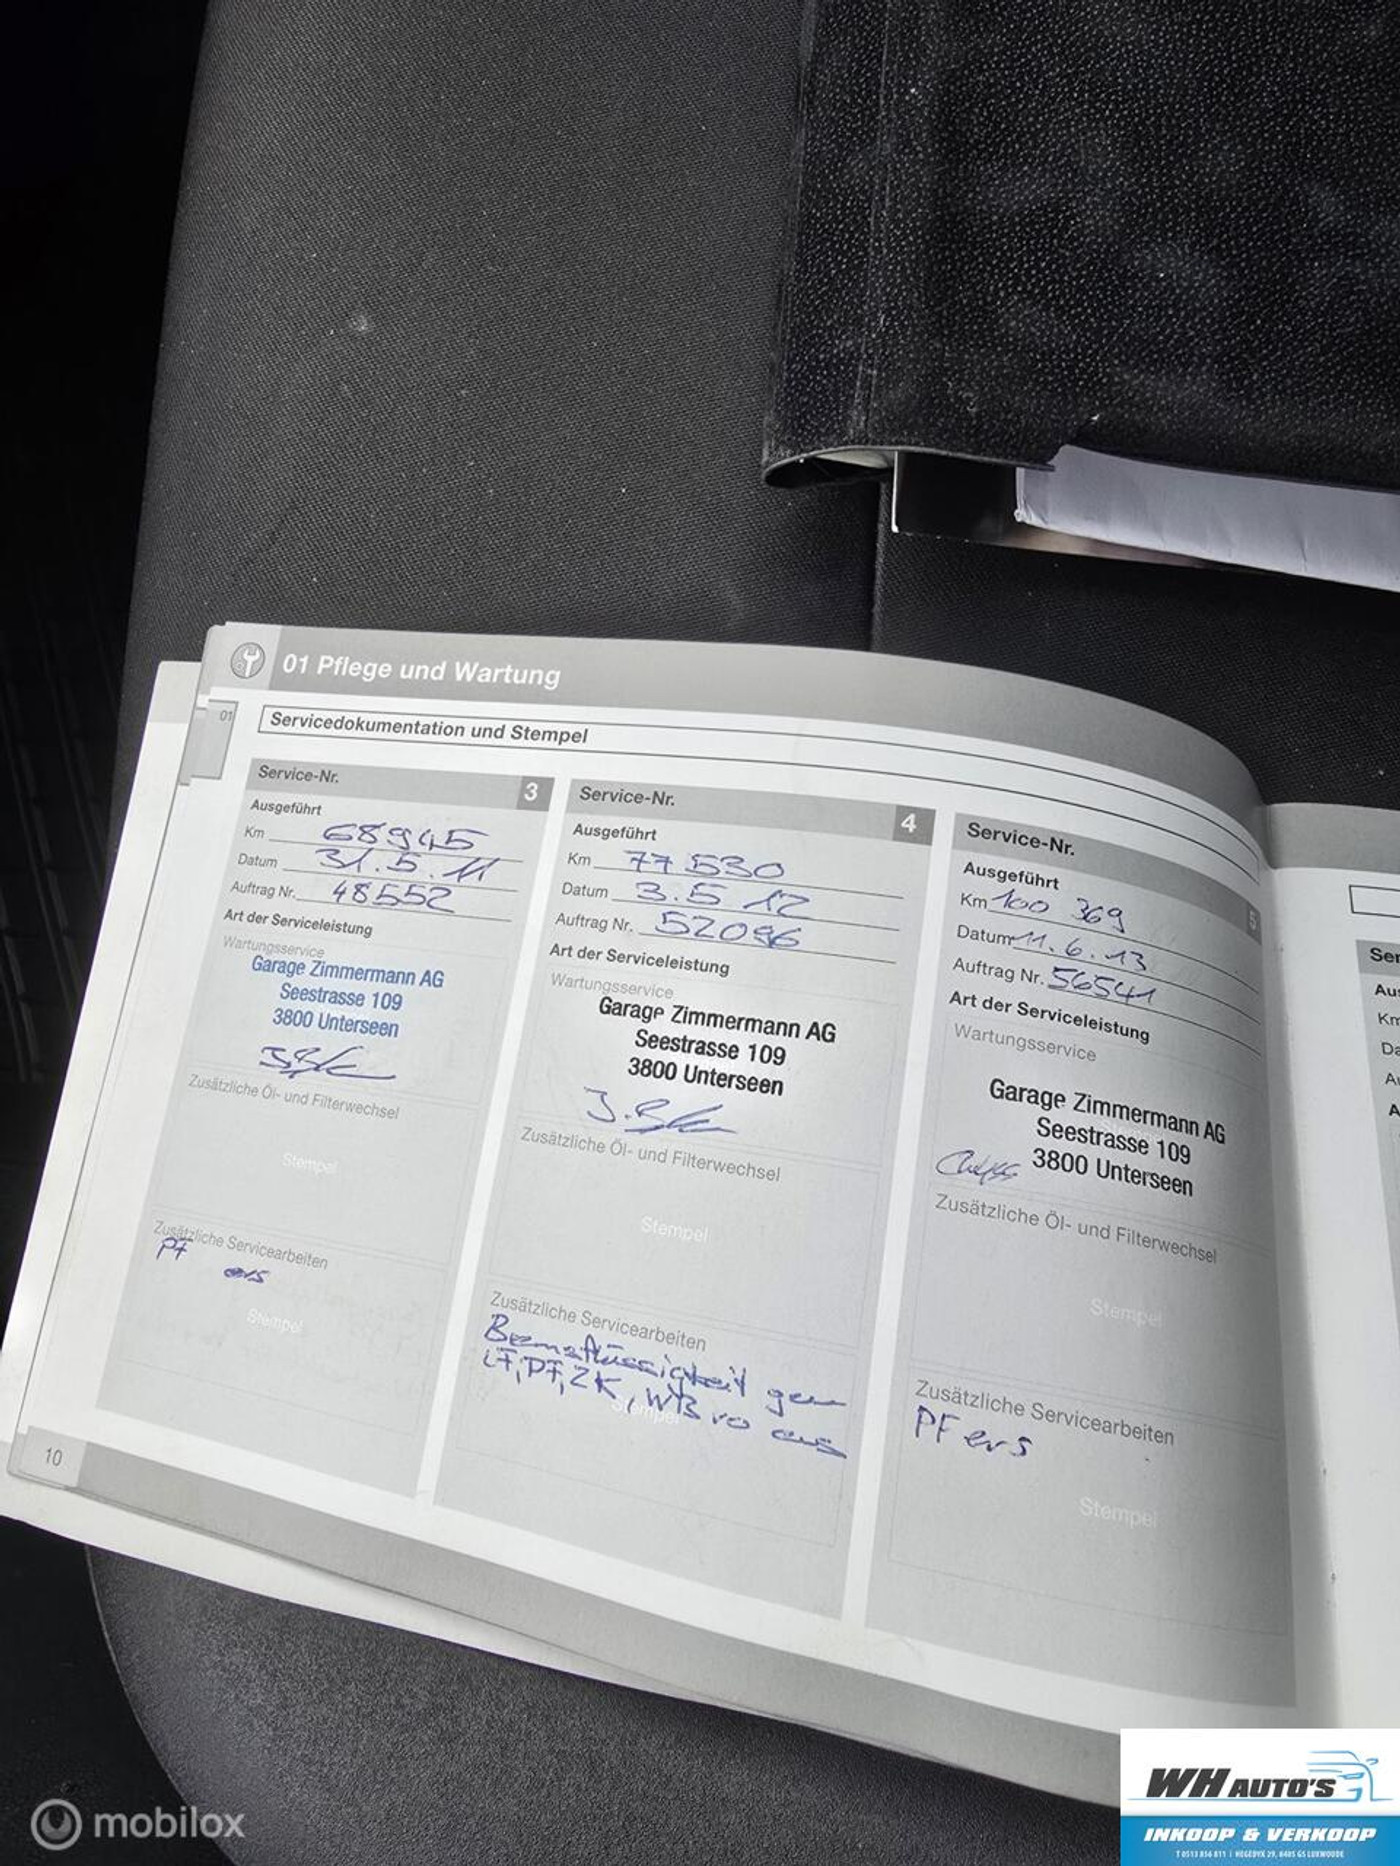 01 Pflege und Wartung
01
Servicedokumentation und Stempel
Service-Nr. 3
Ausgeführt
Km 68945
Datum 31.5.11
Auftrag Nr. 48552
Art der Serviceleistung
Wartungsservice
Garage Zimmermann AG
Seestrasse 109
3800 Unterseen
Zusätzliche Öl- und Filterwechsel
Stempel
Zusätzliche Servicearbeiten
PF ers
Stempel
Service-Nr. 4
Ausgeführt
Km 77530
Datum 3.5 12
Auftrag Nr. 52096
Art der Serviceleistung
Wartungsservice
Garage Zimmermann AG
Seestrasse 109
3800 Unterseen
Zusätzliche Öl- und Filterwechsel
Stempel
Zusätzliche Servicearbeiten
Bremsflüssigkeit gew
LF, PF, ZK, WB vo aus
Stempel
Service-Nr. 5
Ausgeführt
Km 100 369
Datum 11.6.13
Auftrag Nr. 56541
Art der Serviceleistung
Wartungsservice
Garage Zimmermann AG
Seestrasse 109
3800 Unterseen
Zusätzliche Öl- und Filterwechsel
Stempel
Zusätzliche Servicearbeiten
PF ers
Stempel
10
Ser
Aus
Km
Da
Au
A
mobilox
WH AUTO'S
INKOOP & VERKOOP
T 0513 856 811 | HEGEDYK 29, 8405 GS LUXWOUDE